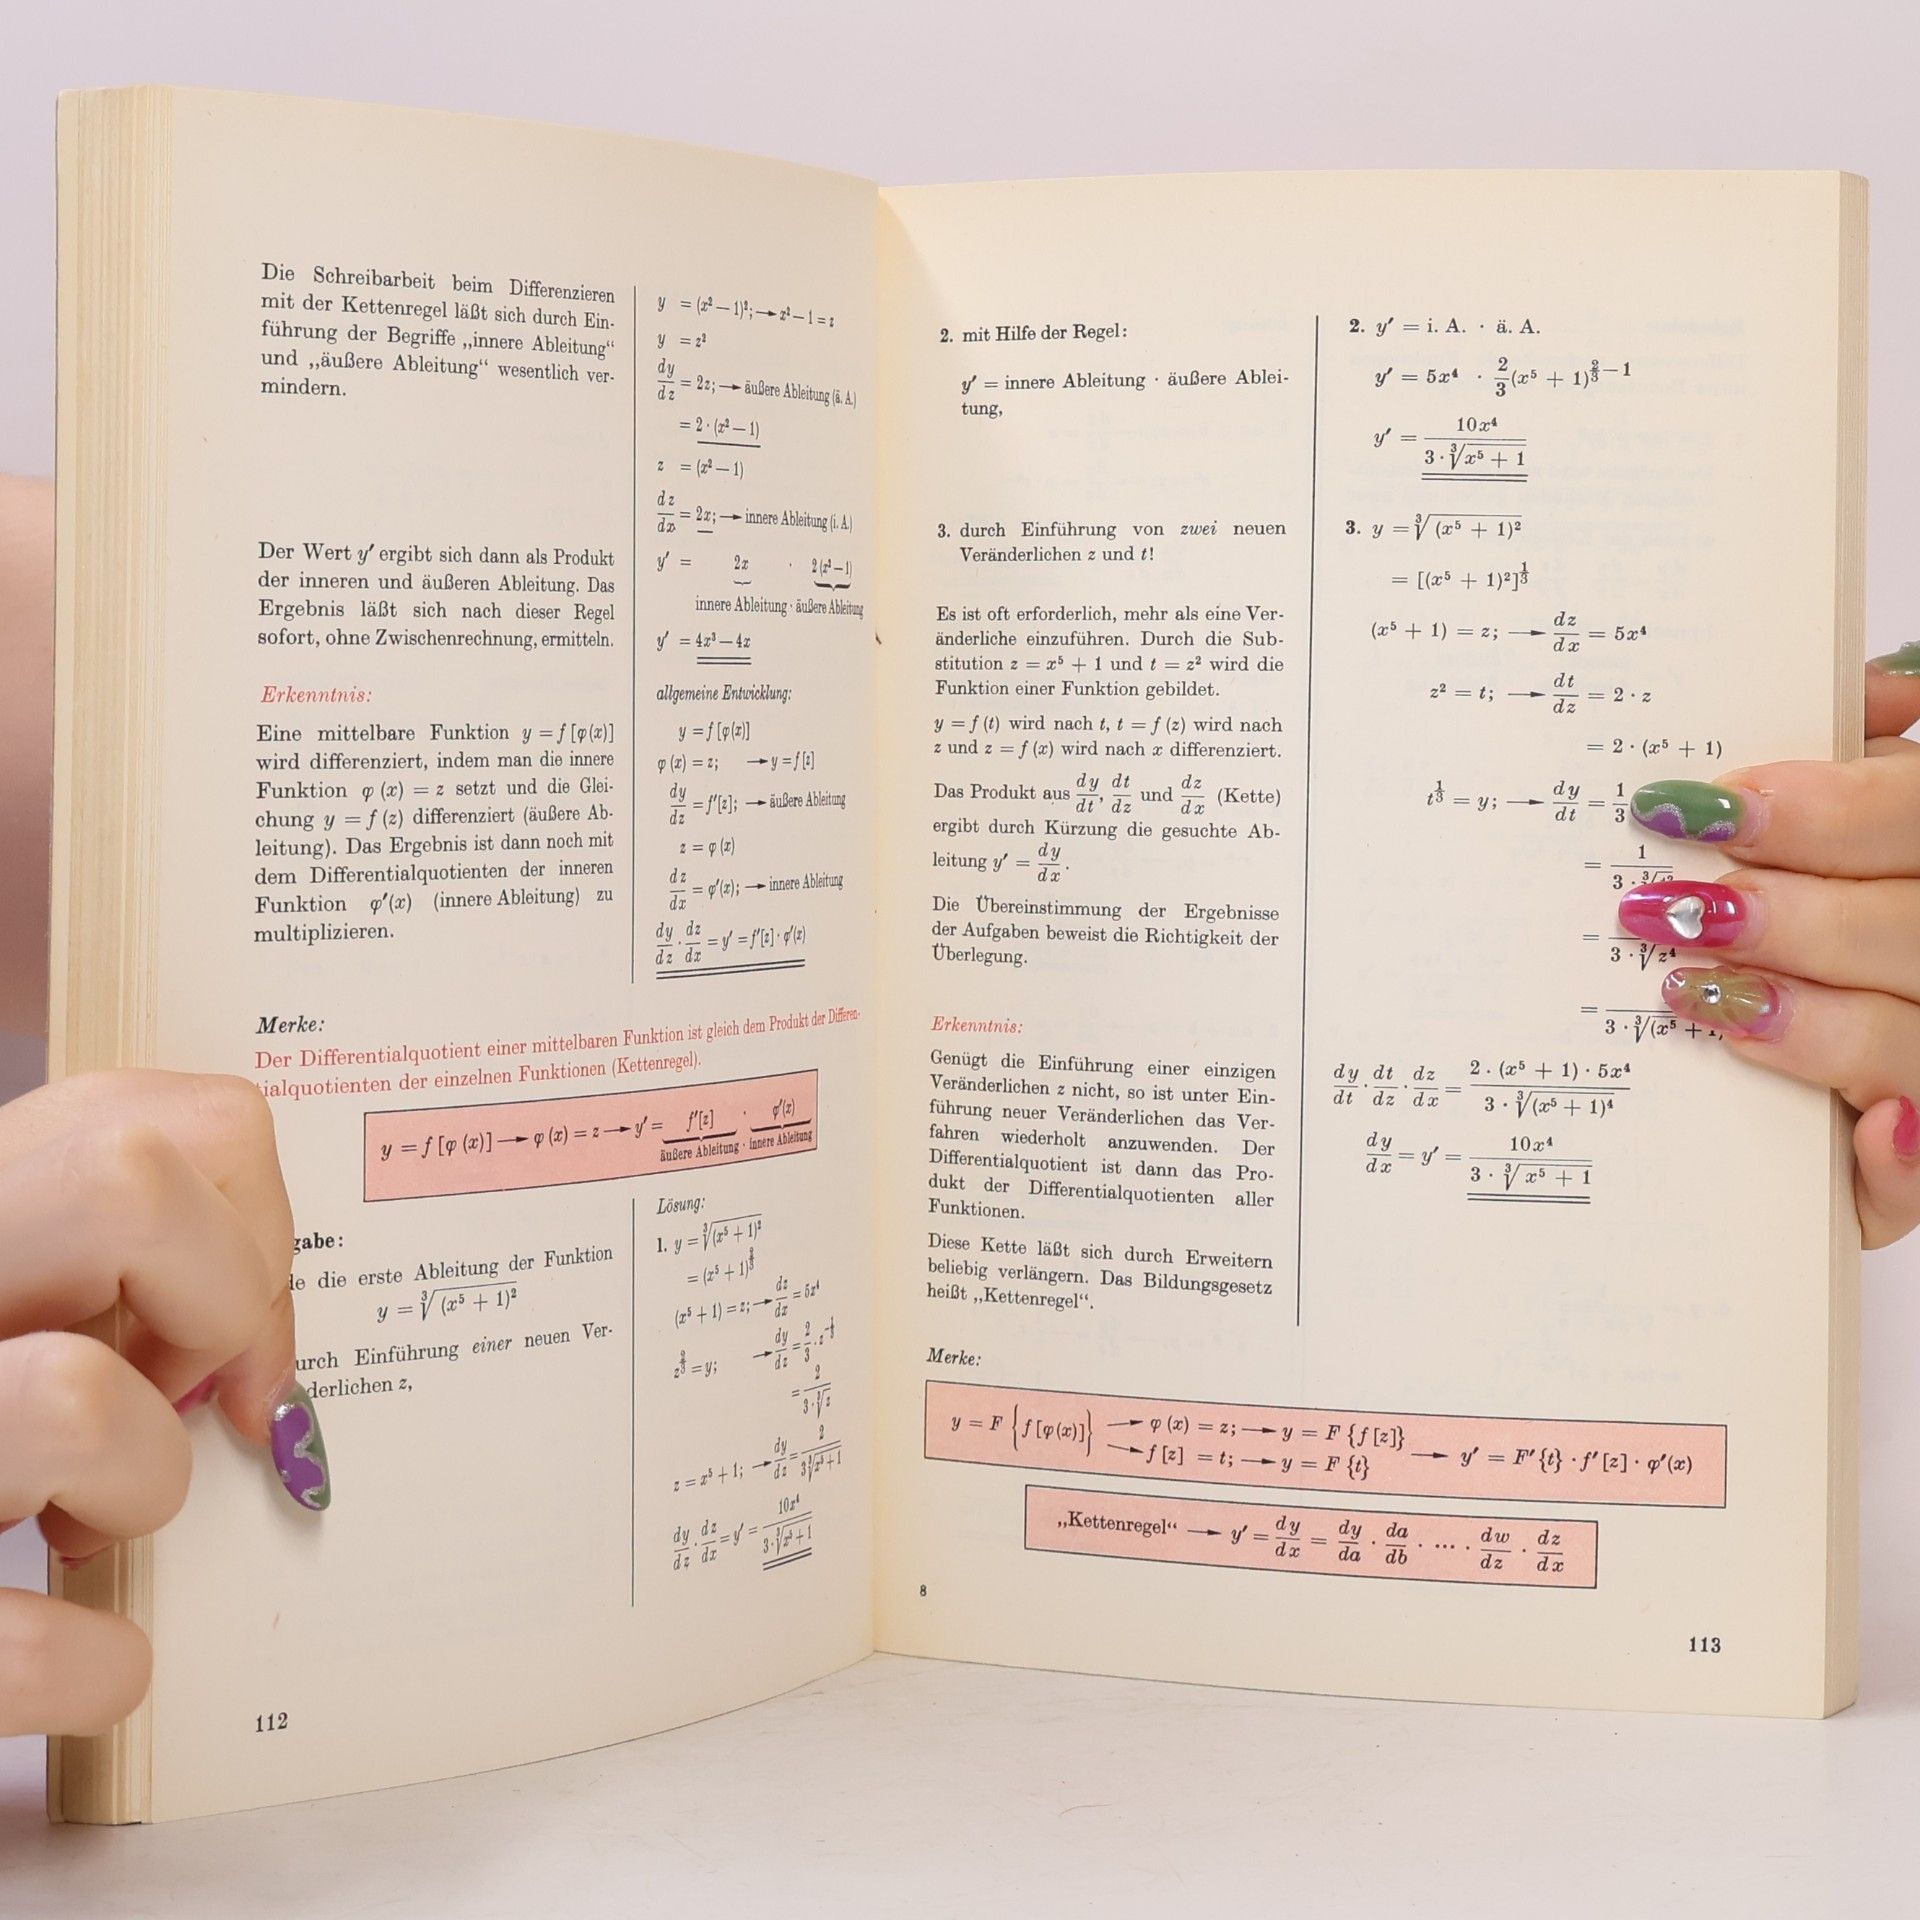 Die Schreibarbeit beim Differenzieren
mit der Kettenregel läßt sich durch Ein-
führung der Begriffe „innere Ableitung“
und „äußere Ableitung“ wesentlich ver-
mindern.
Der Wert y′ ergibt sich dann als Produkt
der inneren und äußeren Ableitung. Das
Ergebnis läßt sich nach dieser Regel
sofort, ohne Zwischenrechnung, ermitteln.
Erkenntnis:
Eine mittelbare Funktion y = f [φ(x)]
wird differenziert, indem man die innere
Funktion φ (x) = z setzt und die Glei-
chung y = f (z) differenziert (äußere Ab-
leitung). Das Ergebnis ist dann noch mit
dem Differentialquotienten der inneren
Funktion φ′(x) (innere Ableitung) zu
multiplizieren.
y = (x² — 1)²; → x² — 1 = z
y = z²
dy/dz = 2z; → äußere Ableitung (ä. A.)
= 2 · (x² — 1)
z = (x² — 1)
dz/dx = 2x; → innere Ableitung (i. A.)
y′ = 2x · 2 (x² — 1)
innere Ableitung · äußere Ableitung
y′ = 4x³ — 4x
allgemeine Entwicklung:
y = f [φ(x)]
φ (x) = z; → y = f [z]
dy/dz = f′[z]; → äußere Ableitung
z = φ (x)
dz/dx = φ′(x); → innere Ableitung
dy/dz · dz/dx = y′ = f′[z] · φ′(x)
Merke:
Der Differentialquotient einer mittelbaren Funktion ist gleich dem Produkt der Differen-
tialquotienten der einzelnen Funktionen (Kettenregel).
y = f [φ (x)] → φ (x) = z → y′ = f′[z] · φ′(x)
äußere Ableitung · innere Ableitung
gabe:
de die erste Ableitung der Funktion
y = ∛(x⁵ + 1)²
urch Einführung einer neuen Ver-
derlichen z,
Lösung:
1. y = ∛(x⁵ + 1)²
= (x⁵ + 1)^(2/3)
(x⁵ + 1) = z; → dz/dx = 5x⁴
z^(2/3) = y; → dy/dz = 2/3 · z^(-1/3)
= 2/(3 · ∛z)
z = x⁵ + 1; → dy/dz = 2/(3 ∛(x⁵ + 1))
dy/dz · dz/dx = y′ = 10x⁴/(3 · ∛(x⁵ + 1))
112
2. mit Hilfe der Regel:
y′ = innere Ableitung · äußere Ablei-
tung,
3. durch Einführung von zwei neuen
Veränderlichen z und t!
Es ist oft erforderlich, mehr als eine Ver-
änderliche einzuführen. Durch die Sub-
stitution z = x⁵ + 1 und t = z² wird die
Funktion einer Funktion gebildet.
y = f (t) wird nach t, t = f (z) wird nach
z und z = f (x) wird nach x differenziert.
Das Produkt aus dy/dt, dt/dz und dz/dx (Kette)
ergibt durch Kürzung die gesuchte Ab-
leitung y′ = dy/dx.
Die Übereinstimmung der Ergebnisse
der Aufgaben beweist die Richtigkeit der
Überlegung.
Erkenntnis:
Genügt die Einführung einer einzigen
Veränderlichen z nicht, so ist unter Ein-
führung neuer Veränderlichen das Ver-
fahren wiederholt anzuwenden. Der
Differentialquotient ist dann das Pro-
dukt der Differentialquotienten aller
Funktionen.
Diese Kette läßt sich durch Erweitern
beliebig verlängern. Das Bildungsgesetz
heißt „Kettenregel“.
2. y′ = i. A. · ä. A.
y′ = 5x⁴ · 2/3 (x⁵ + 1)^(2/3 — 1)
y′ = 10x⁴/(3 · ∛(x⁵ + 1))
3. y = ∛(x⁵ + 1)²
= [(x⁵ + 1)²]^(1/3)
(x⁵ + 1) = z; → dz/dx = 5x⁴
z² = t; → dt/dz = 2 · z
= 2 · (x⁵ + 1)
t^(1/3) = y; → dy/dt = 1/3
= 1/(3 · ∛t²)
= 3 · ∛z⁴
= 3 · ∛(x⁵ + 1)
dy/dt · dt/dz · dz/dx = 2 · (x⁵ + 1) · 5x⁴/(3 · ∛(x⁵ + 1)⁴)
dy/dx = y′ = 10x⁴/(3 · ∛(x⁵ + 1))
Merke:
y = F {f [φ(x)]} → φ (x) = z; → y = F {f [z]}
→ f [z] = t; → y = F {t} → y′ = F′{t} · f′[z] · φ′(x)
„Kettenregel“ → y′ = dy/dx = dy/da · da/db · ... · dw/dz · dz/dx
8
113